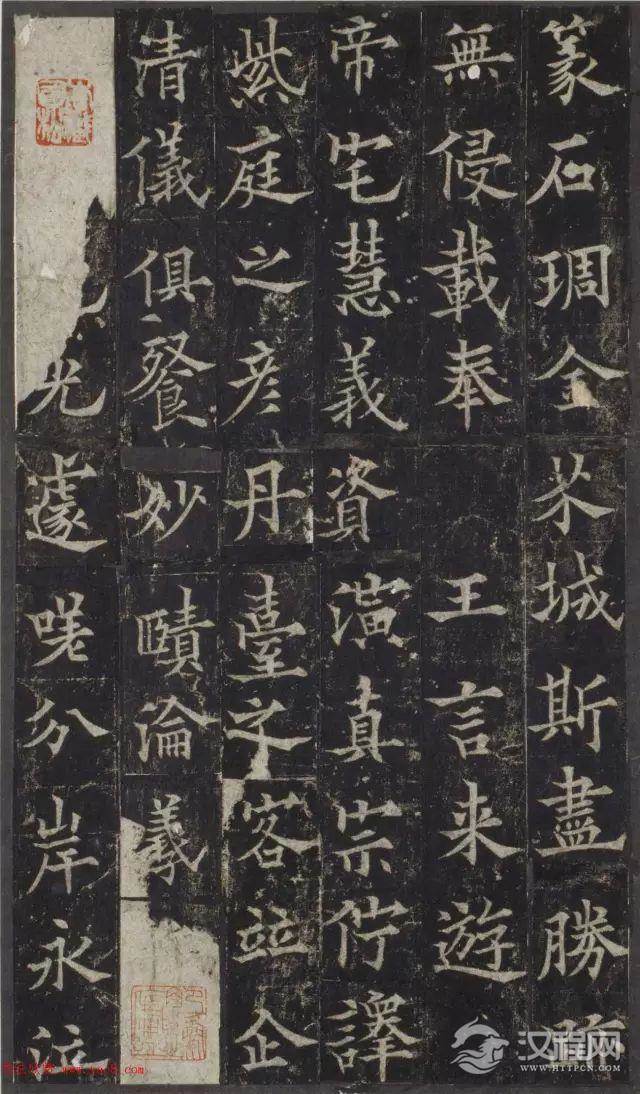 篆石琱金芥城斯盡勝
無侵載奉 王言来遊
帝宅慧義資演真宗佇譯
紫庭之彦丹臺之客並企
清儀俱餐妙賾淪羲
光遽嗟分岸永泣
汉程网
WWW.HTTPCN.COM